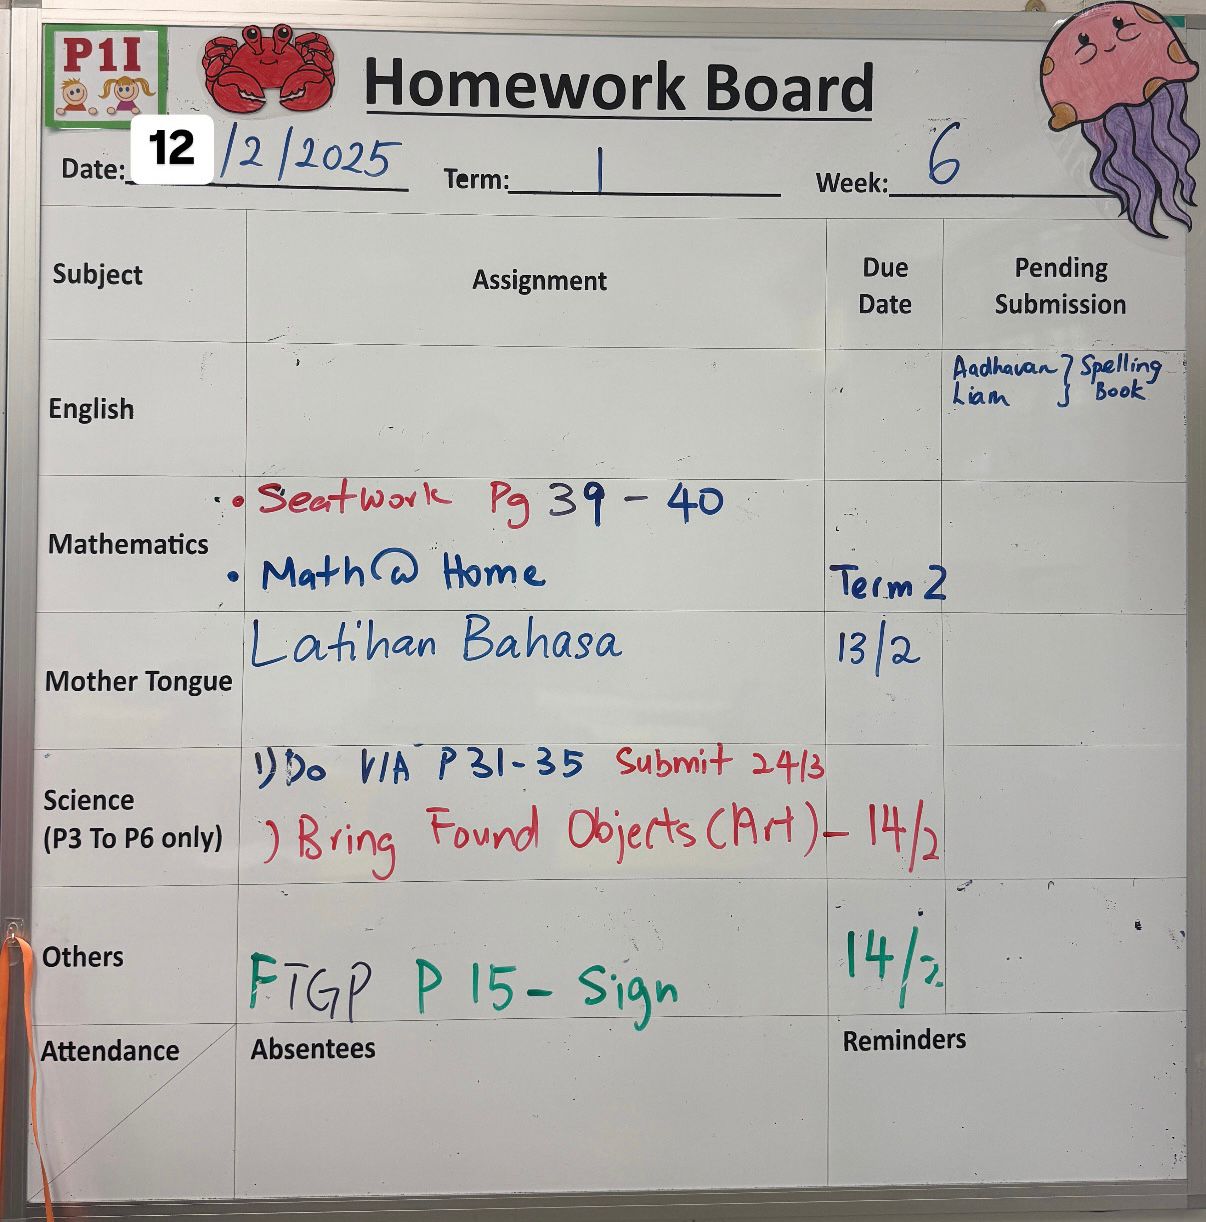 P1I
Homework Board
Date: 12/2/2025 Term: 1 Week: 6
Subject Assignment Due Date Pending Submission
English Aadhavan } Spelling
Liam } Book
Mathematics
• Seatwork Pg 39 - 40
• Math@Home Term 2
Mother Tongue Latihan Bahasa 13/2
Science
(P3 To P6 only)
1) Do V/A P31-35 Submit 24/3
) Bring Found Objects (Art) - 14/2
Others FTGP P 15 - Sign 14/2
Attendance Absentees Reminders